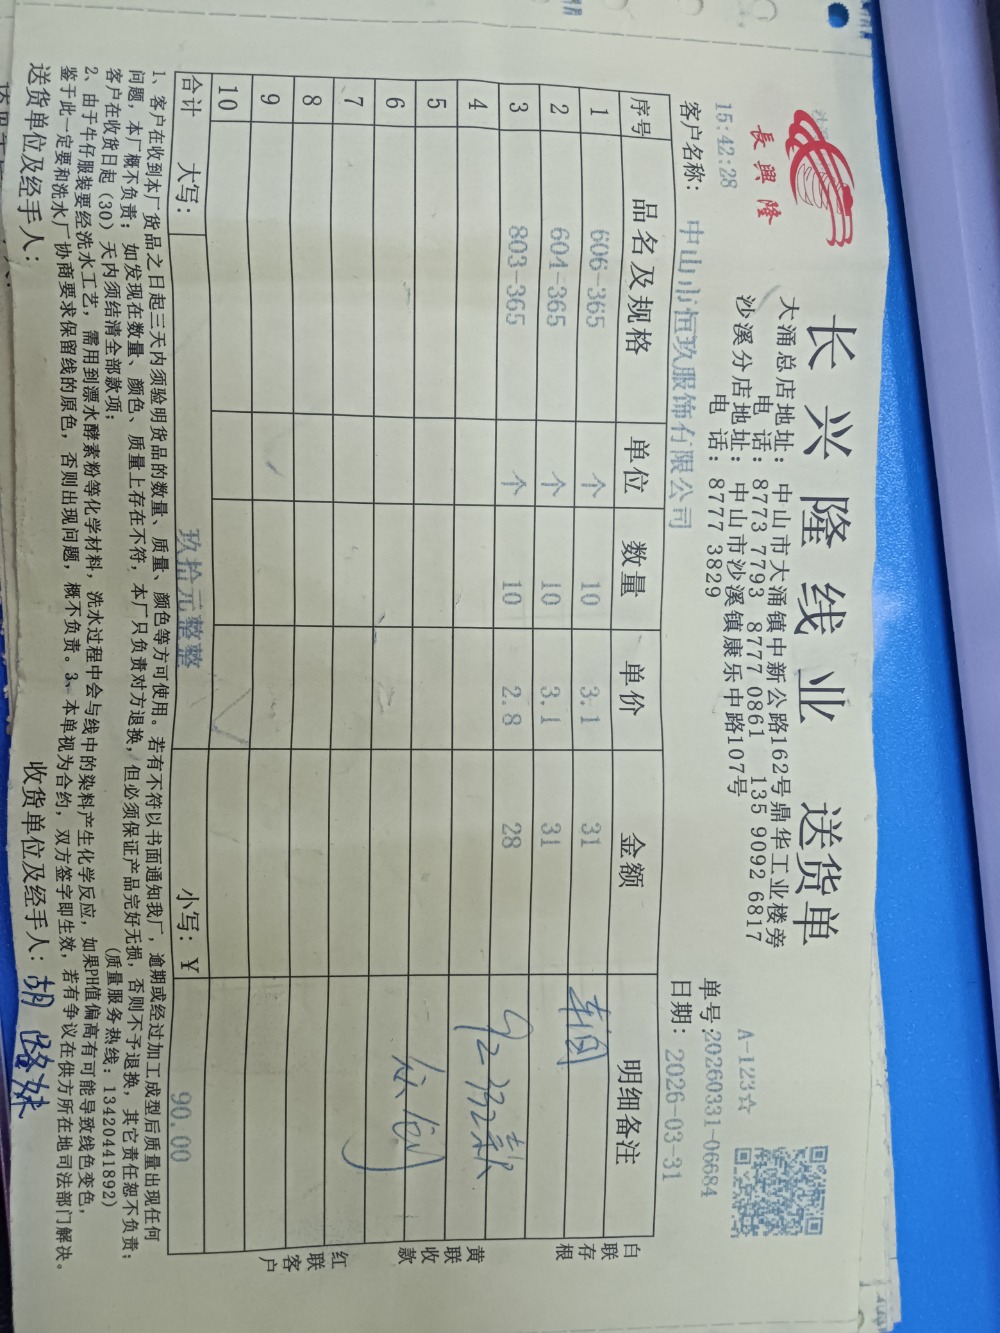 長興隆
长兴隆线业 送货单
大涌总店地址：中山市大涌镇中新公路162号鼎华工业楼旁
电 话：8773 7793 8777 0861 135 9092 6817
沙溪分店地址：中山市沙溪镇康乐中路107号
电 话：8777 3829
A-123☆
15:42:28
单号:20260331-06684
客户名称： 中山市恒玖服饰有限公司
日期：2026-03-31
序号 品名及规格 单位 数量 单价 金额 明细备注
1 606-365 个 10 3.1 31
2 604-365 个 10 3.1 31
3 803-365 个 10 2.8 28
4
5
6
7
8
9
10
合计 大写： 玖拾元整整 小写：￥ 90.00
白联存根
黄联收款
红联客户
1、客户在收到本厂货品之日起三天内须验明货品的数量、质量、颜色等方可使用。若有不符以书面通知我厂，逾期或经过加工成型后质量出现任何
问题，本厂概不负责；如发现在数量、颜色、质量上存在不符，本厂只负责对方退换，但必须保证产品完好无损，否则不予退换，其它责任恕不负责；
客户在收货日起（30）天内须结清全部款项； (质量服务热线：13420441892)
2、由于牛仔服装要经洗水工艺，需用到漂水酵素粉等化学材料，洗水过程中会与线中的染料产生化学反应，如果PH值偏高有可能导致线色变色，
鉴于此一定要和洗水厂协商要求保留线的原色，否则出现问题，概不负责。3、本单视为合约，双方签字即生效，若有争议在供方所在地司法部门解决。
送货单位及经手人： 收货单位及经手人：胡路妹